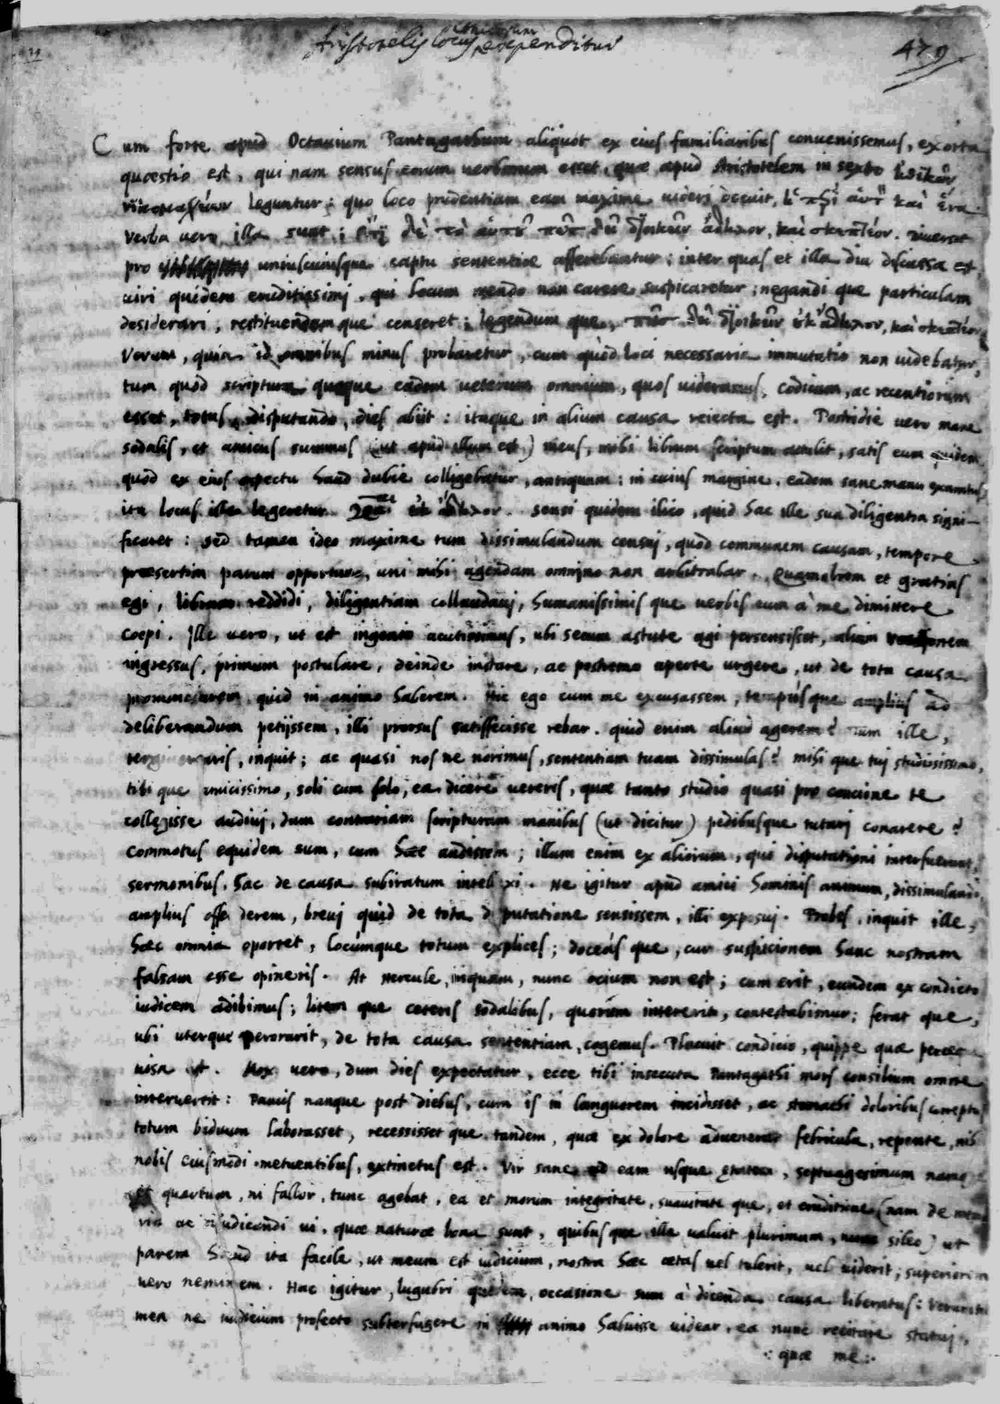 Aristotelis locus expenditur
479
Cum forte apud Octauium Pantagathum aliquot ex eius familiaribus conuenissemus, exorta
quæstio est, qui nam sensus eorum uerborum esset, quæ apud Aristotelem in sexto ἠθικῶν
νικομαχείων leguntur; quo loco prudentiam eam maxime uideri docuit, ἡ περὶ αὐτὸν καὶ ἕνα.
Verba uero illa sunt; ἔτι δὲ τὸ αὑτοῦ πῶς δεῖ διοικεῖν ἄδηλον, καὶ σκεπτέον.
pro uniuscuiusque captu sententiæ afferebantur; inter quas et illa diu discussa est,
uiri quidem eruditissimi, qui locum mendo non carere suspicaretur; negandi quæ particulam
desiderari; restituendamque censeret; legendum que, πῶς δεῖ διοικεῖν οὐκ ἄδηλον, καὶ σκεπτέον
Verum, quia id omnibus minus probaretur, cum quòd loci necessaria immutatio non uidebatur,
tum quòd scriptura quoque eadem ueterum omnium, quos uideramus, codicum, ac recentiorum
esset, totus disputando dies abijt: itaque in alium causa reiecta est. Postridie uero mane
sodalis, et amicus summus (ut apud illum est) meus, mihi librum scriptum attulit, satis eum quidem
quòd ex eius aspectu haud dubie colligebatur, antiquum; in cuius margine, eadem sane manu
ita locus ille legeretur οὐκ ἄδηλον. sensi quidem ilico, quid hac ille sua diligentia signi-
ficaret: sed tamen ideo maxime tum dissimulandum censui, quòd communem causam, tempore
præsertim parum opportuno, uni mihi agendam omnino non arbitrabar. Quamobrem et gratias
egi, librum reddidi, diligentiam collaudaui, humanissimis que uerbis eum à me dimittere
coepi. Ille uero, ut est ingenio acutissimus, ubi secum astute agi persensisset, aliam
ingressus, primum postulare, deinde instare, ac postremo aperte urgere, ut de tota causa
pronunciarem quid in animo haberem. Hic ego cum me excusassem, tempusque amplius ad
deliberandum petijssem, illi prorsus satisfecisse rebar. quid enim aliud agerem? tum ille,
tergiuersaris, inquit; ac quasi nos ne norimus, sententiam tuam dissimulas? mihi que tui studiosissimo,
tibi que amicissimo, soli cum solo, ea dicere uereris, quæ tanto studio quasi pro concione te
collegisse audiui, dum contrariam scripturam manibus (ut dicitur) pedibusque tutari conarere?
Commotus equidem sum, cum hæc audissem; illum enim ex aliorum, qui disputationi interfuerant,
sermonibus, hac de causa subiratum intellexi. Ne igitur apud amici hominis animum, dissimulando
amplius offenderem, breui quid de tota disputatione sensissem, illi exposui. Probes, inquit ille,
hæc omnia oportet, locumque totum explices; doceas que, cur suspicionem hanc nostram
falsam esse opineris. At Hercule, inquam, nunc ocium non est; cum erit, eundem ex condicto
iudicem adibimus; litem que ceteris sodalibus, quorum intererit, contestabimur; ferat que,
ubi uterque perorarit, de tota causa sententiam, cogemus. Placuit condicio, quippe quæ
uisa est. Mox uero, dum dies expectatur, ecce tibi insecuta Pantagathi mors consilium omne
interuertit: Paucis nanque post diebus, cum is in languorem incidisset, ac stomachi doloribus correptus
totum biduum laborasset, recessisset que tandem, quæ ex dolore aduenerat febricula, repente, nih
nobis eiusmodi metuentibus, extinctus est. Vir sane ad eam usque ætatem, septuagesimum namq
et quartum, ni fallor, tunc agebat, ea et morum integritate, suauitate que, et eruditione (nam de memo
ria ac iudicandi ui, quæ naturæ bona sunt, quibus que illa ualuit plurimum, nunc sileo) ut
parem haud ita facile, ut meum est iudicium, nostra hæc ætas uel tulerit, uel uiderit; superiorum
uero neminem. Hac igitur, lugubri quidem, occasione sum à dicenda causa liberatus: Verum
mea ne iudicium profecto subterfugere in animo habuisse uidear, ea nunc recitare statui,
: quæ me :